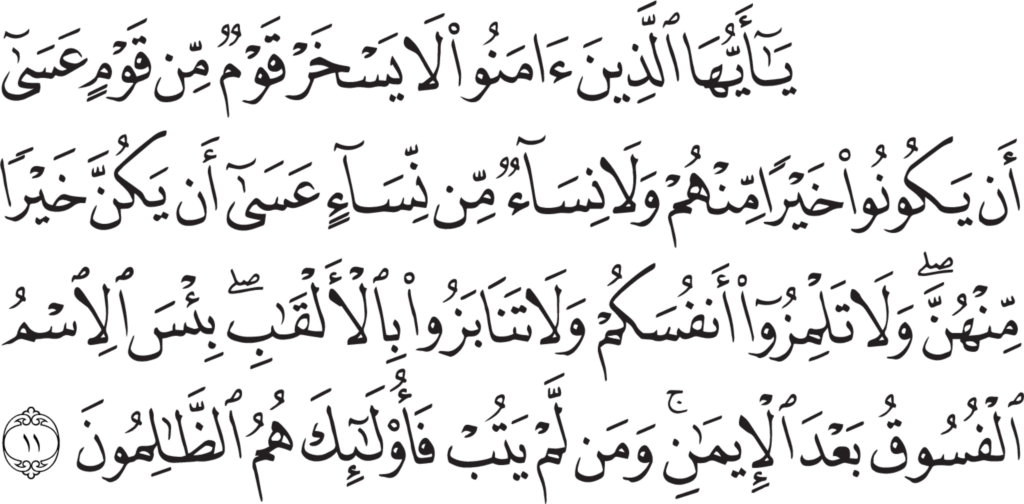 يَٰٓأَيُّهَا ٱلَّذِينَ ءَامَنُوا۟ لَا يَسْخَرْ قَوْمٌ مِّن قَوْمٍ عَسَىٰٓ
أَن يَكُونُوا۟ خَيْرًا مِّنْهُمْ وَلَا نِسَآءٌ مِّن نِّسَآءٍ عَسَىٰٓ أَن يَكُنَّ خَيْرًا
مِّنْهُنَّ ۖ وَلَا تَلْمِزُوٓا۟ أَنفُسَكُمْ وَلَا تَنَابَزُوا۟ بِٱلْأَلْقَٰبِ ۖ بِئْسَ ٱلِٱسْمُ
ٱلْفُسُوقُ بَعْدَ ٱلْإِيمَٰنِ ۚ وَمَن لَّمْ يَتُبْ فَأُو۟لَٰٓئِكَ هُمُ ٱلظَّٰلِمُونَ ١١